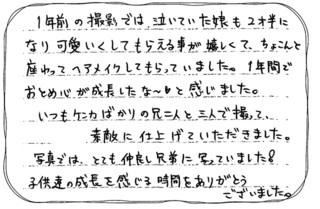 1年前の撮影では、泣いていた娘も2才半に
なり可愛いくしてもらえる事が嬉しくて、ちょこんと
座わってヘアメイクしてもらっていました。1年間で
おとめ心が成長したな〜♥と感じました。
いつもケンカばかりの兄二人と三人で撮って、
素敵に仕上げていただきました。
写真では、とても仲良し兄弟に写っていました!
子供達の成長を感じる時間をありがとう
ございました。